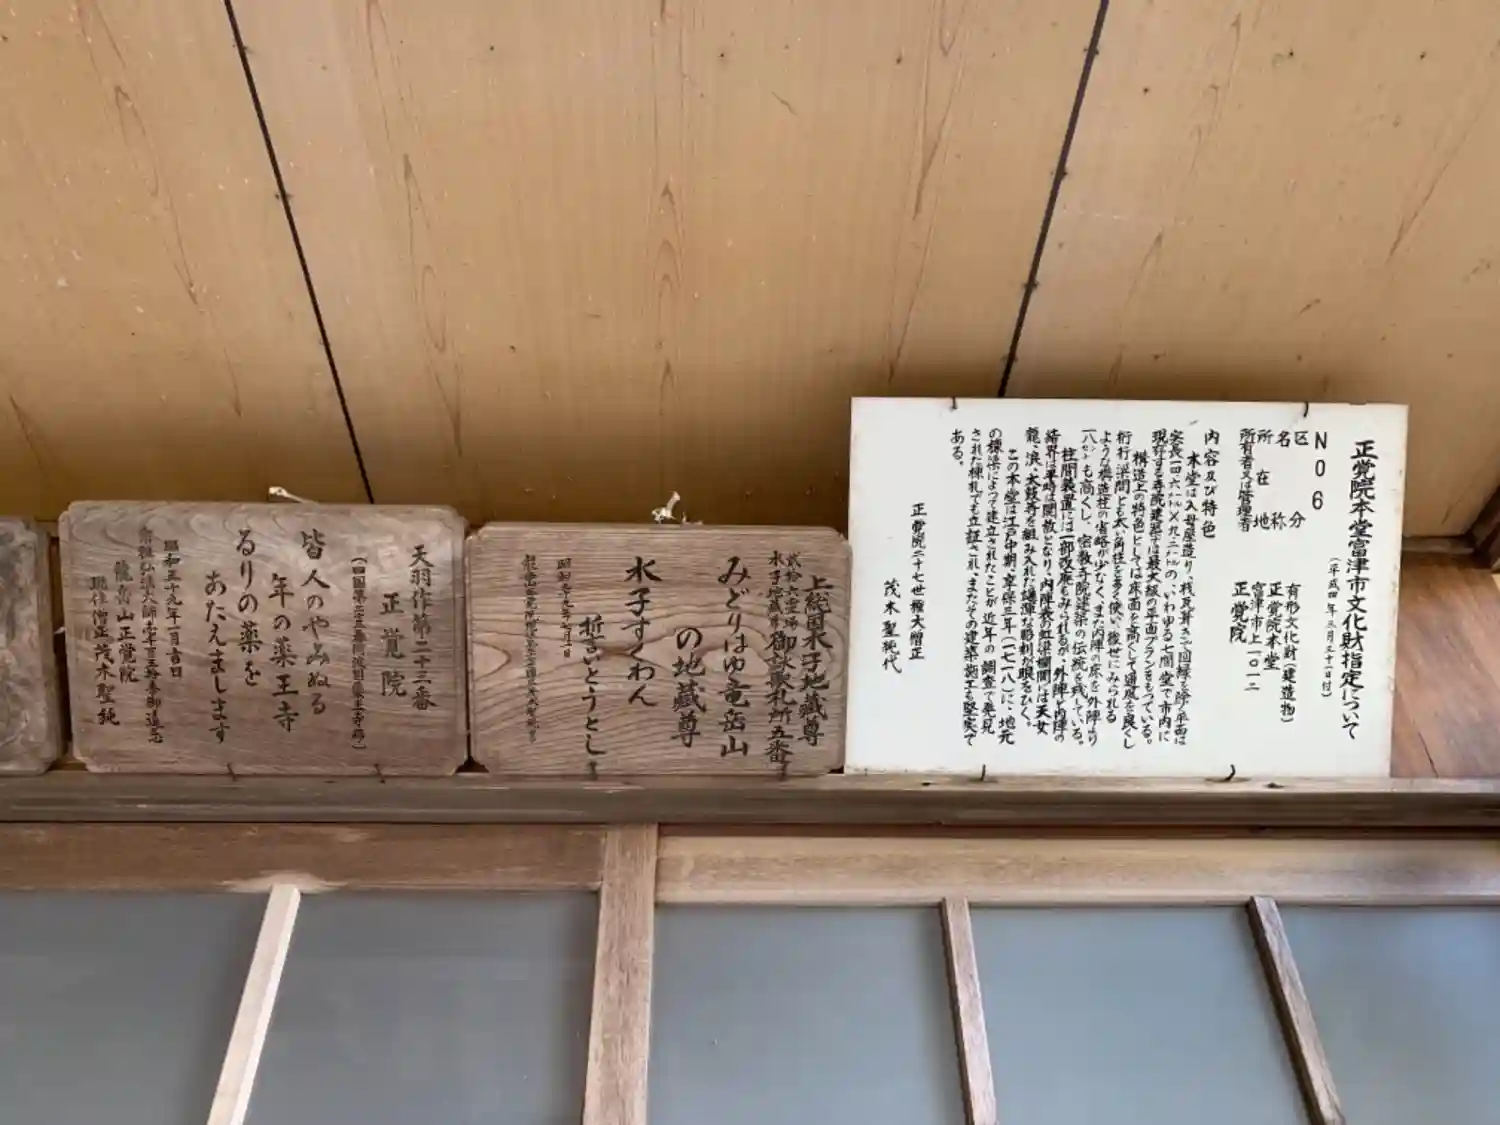 正覚院本堂富津市文化財指定について
(平成四年三月三十一日付)
No 6
区分 有形文化財(建造物)
名称 正覚院本堂
所在地 富津市上一〇一二
所有者又は管理者 正覚院
内容及び特色
本堂は入母屋造り、桟瓦葺きで回縁を除く平面は
の、いわゆる七間堂で市内に
現存する寺院建築では最大級の平面プランをもっている。
構造上の特色としては床面を高くして通風を良くし
桁行、梁間とも太い角柱を多く使い、後世にみられる
ような構造柱の省略が少なく、また内陣の床を外陣より
も高くし、密教寺院建築の伝統を残している。
柱間装置には一部改廃もみられるが、外陣と内陣の
結界は平時は開放となり、内陣表の虹梁欄間には天女
龍、浜、太鼓等を組み入れた雄渾な彫刻が眼をひく。
この本堂は江戸中期、享保三年(一七一八)に、地元
の棟梁によって建立されたことが近年の調査で発見
された棟札でも立証され、またその建築術工も堅実で
ある。
正覚院二十七世権大僧正
茂木聖純代
上総国水子地蔵尊
弐拾六霊場
水子地蔵尊 御詠歌札所五番
みどりはゆ竜岳山
の地蔵尊
水子すくわん
誓いとうとし
天羽作第二十三番
正覚院
皆人のやみぬる
年の薬王寺
るりの薬を
あたえまします
昭和五十九年一月吉日
龍岳山正覚院
現住僧正茂木聖純